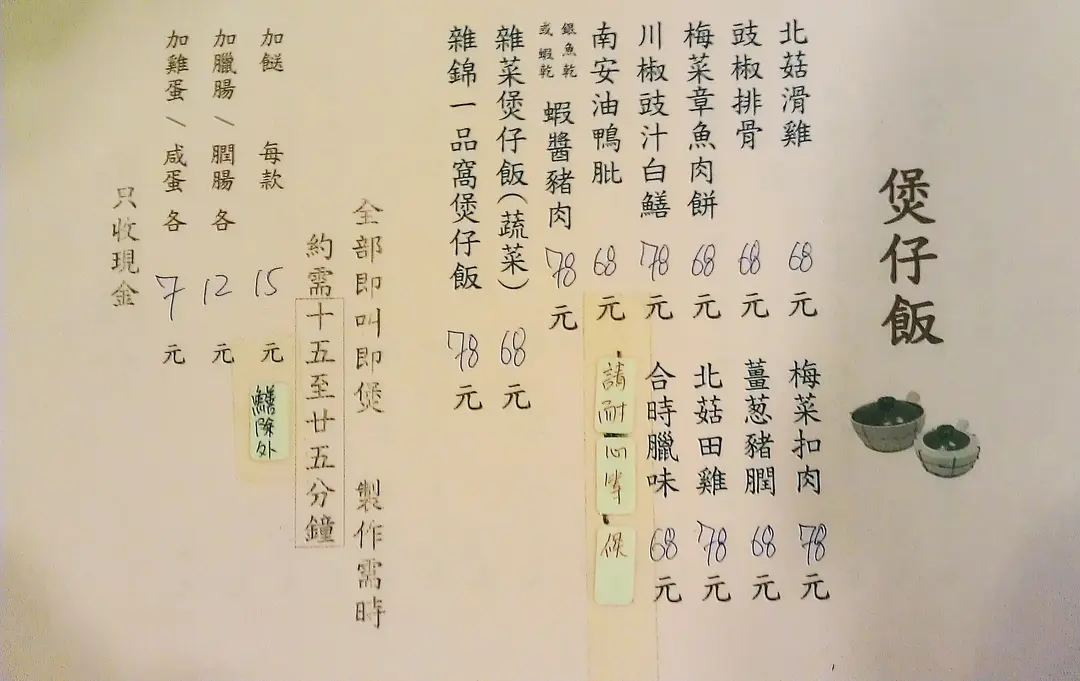 煲仔飯
北菇滑雞 68 元
梅菜扣肉 78 元
豉椒排骨 68 元
薑葱豬膶 68 元
梅菜章魚肉餅 68 元
北菇田雞 78 元
川椒豉汁白鱔 78 元
合時臘味 68 元
南安油鴨髀 68 元
請耐心等候
銀魚乾
或蝦乾
蝦醬豬肉 78 元
雜菜煲仔飯(蔬菜) 68 元
雜錦一品窩煲仔飯 78 元
全部即叫即煲 製作需時
約需十五至廿五分鐘
加餸 每款 15 元
鱔除外
加臘腸/膶腸 各 12 元
加雞蛋/咸蛋 各 7 元
只收現金